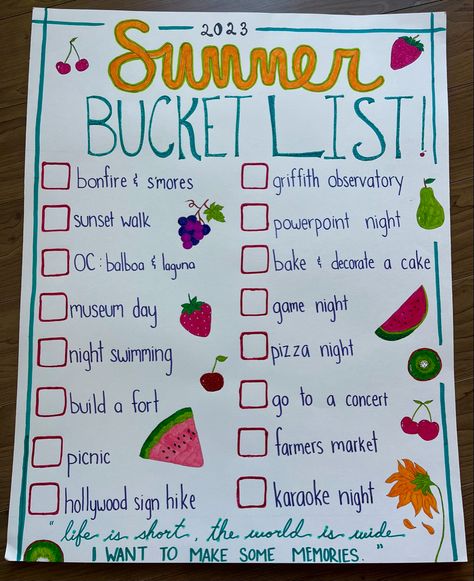 2023
Summer
BUCKET LIST!
bonfire & s'mores
sunset walk
OC: balboa & laguna
museum day
night swimming
build a fort
picnic
hollywood sign hike
griffith observatory
powerpoint night
bake & decorate a cake
game night
pizza night
go to a concert
farmers market
karaoke night
"life is short, the world is wide
I WANT TO MAKE SOME MEMORIES."